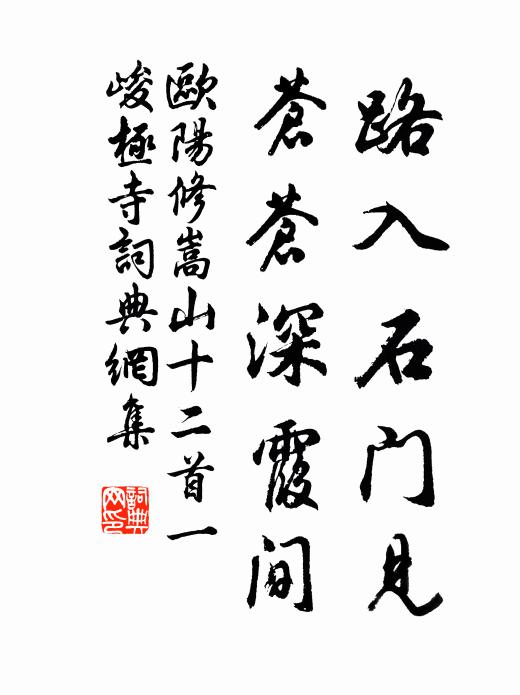 路入石门见
苍苍深霞间
歐陽修嵩山十二首一
峻極寺詞典網集
詞典
网印